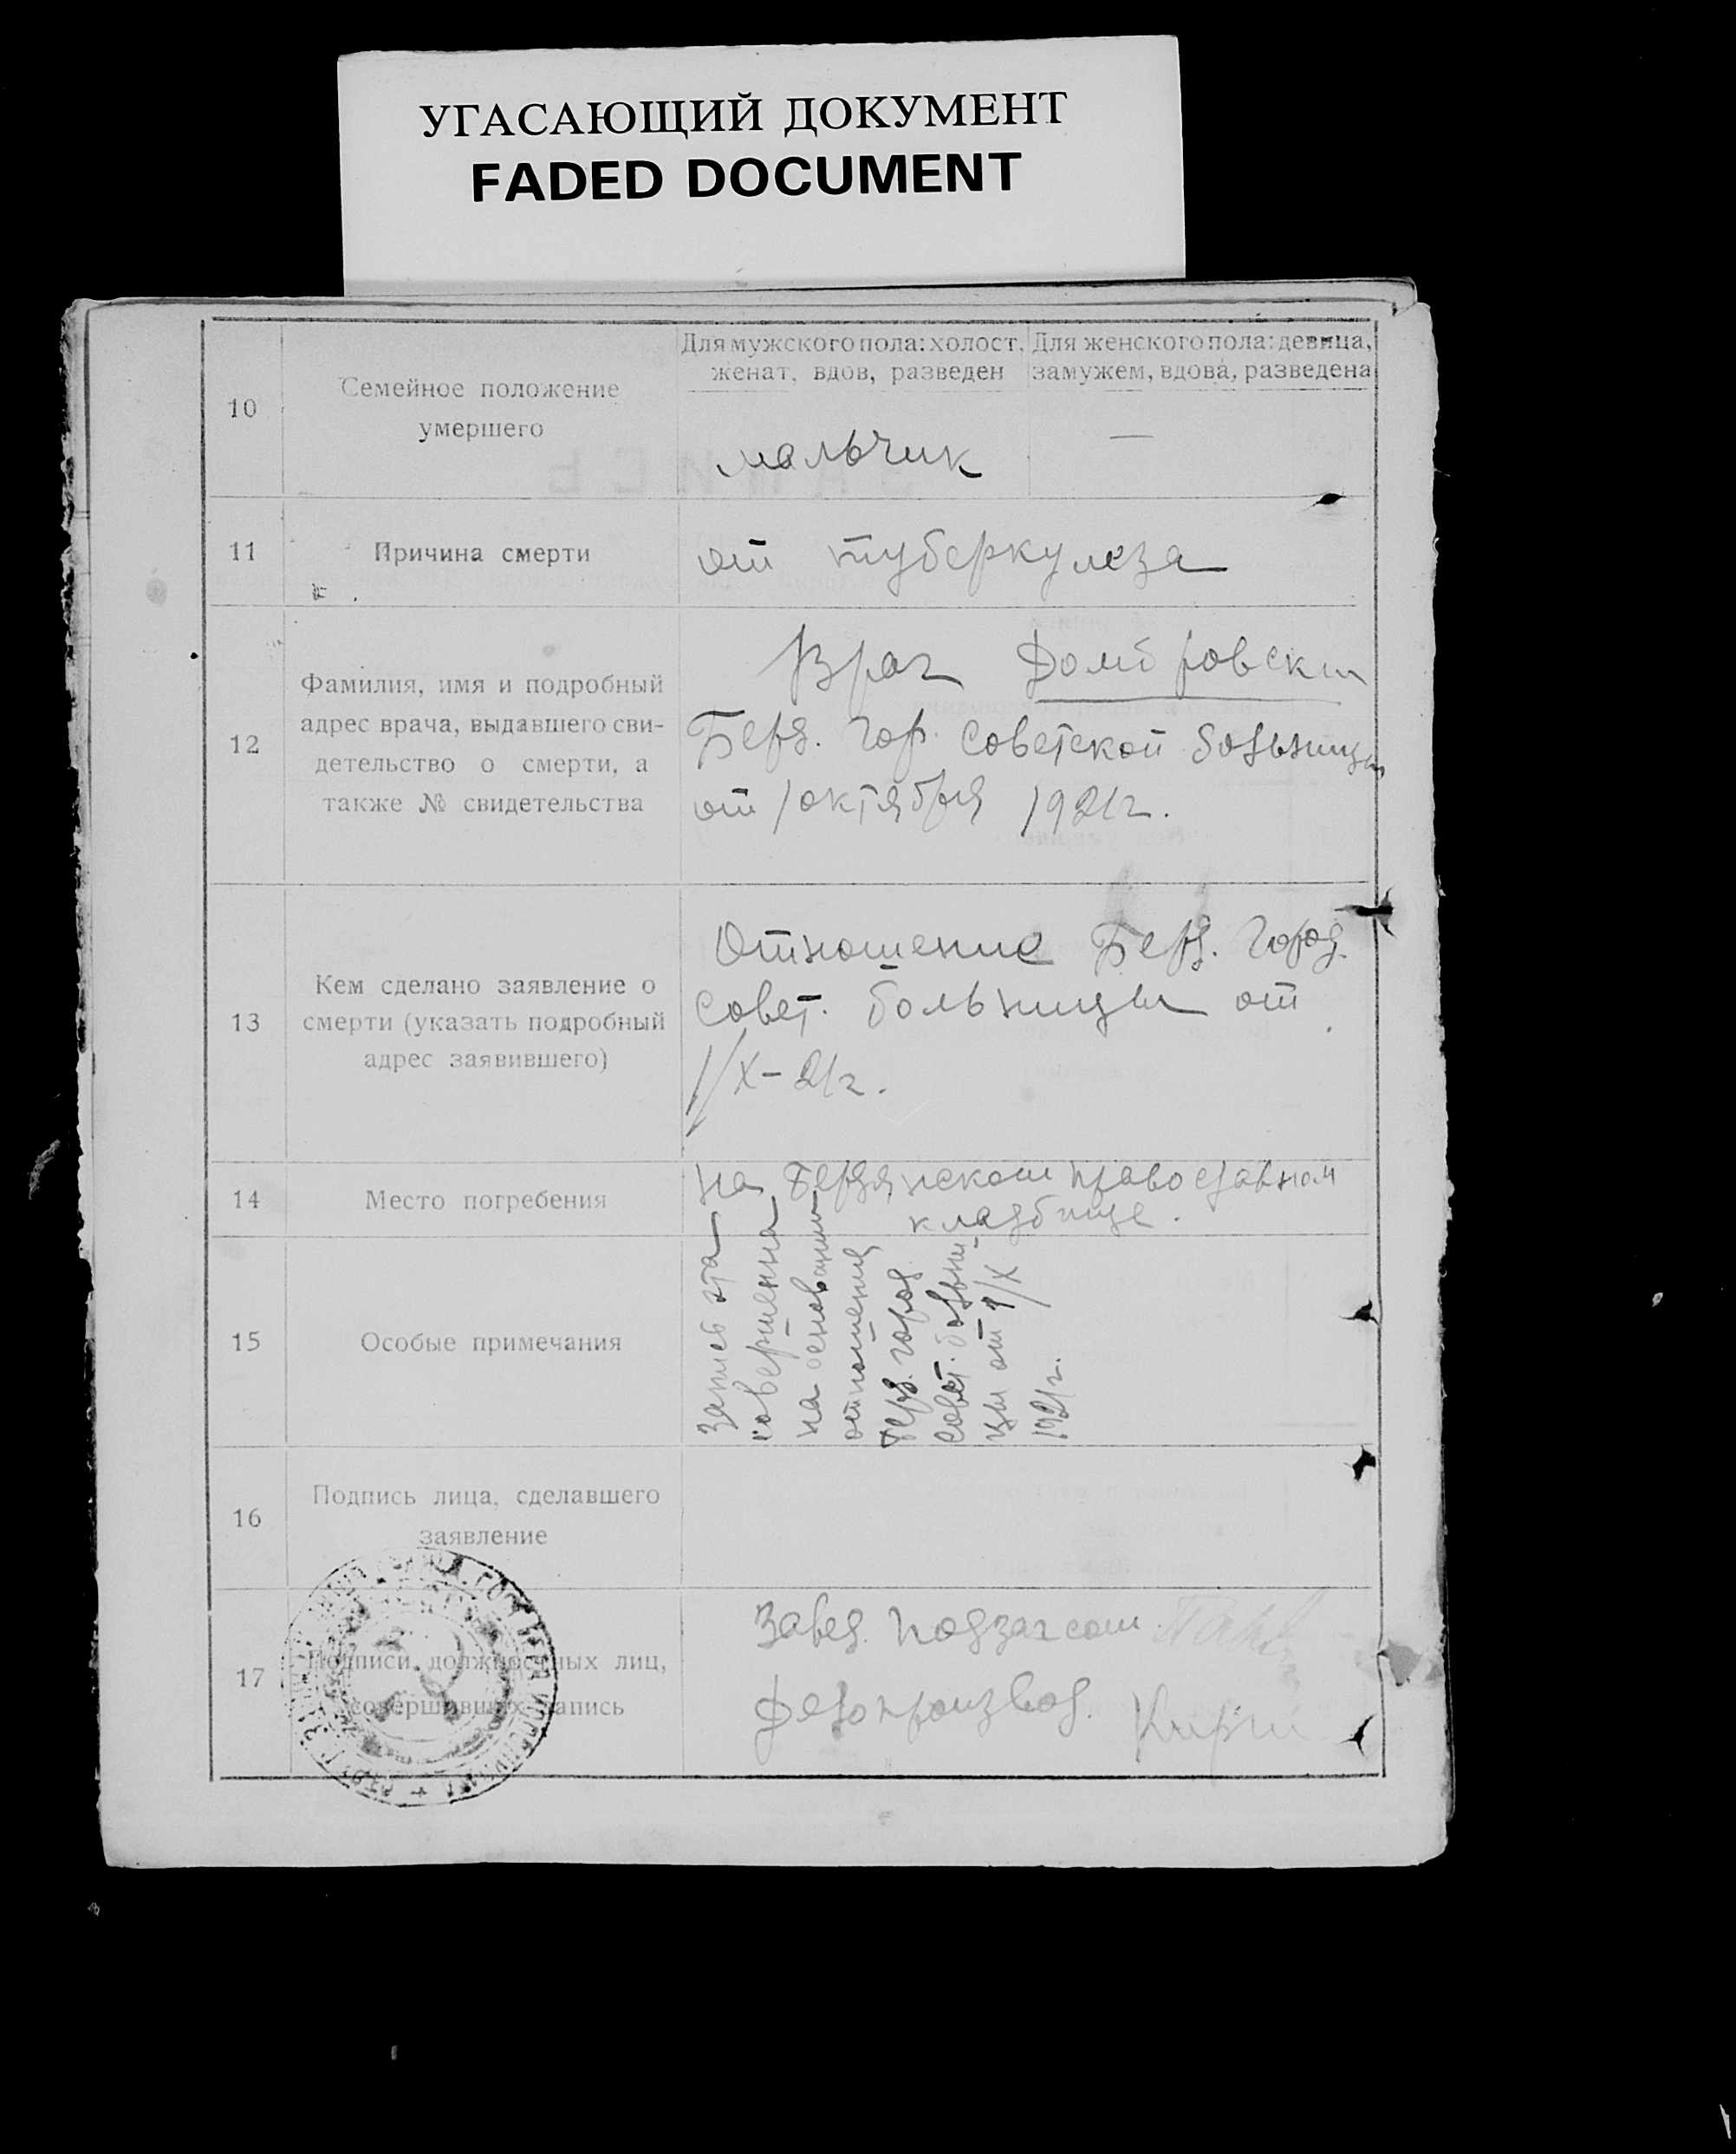 УГАСАЮЩИЙ ДОКУМЕНТ
FADED DOCUMENT
10
Семейное положение
умершего
Для мужского пола: холост,
женат, вдов, разведен
Для женского пола: девица,
замужем, вдова, разведена
мальчик
—
11
Причина смерти
от туберкулеза
12
Фамилия, имя и подробный
адрес врача, выдавшего сви-
детельство о смерти, а
также № свидетельства
Врач Домбровский
Берд. гор. Советской больницы
от 1 октября 1921г.
13
Кем сделано заявление о
смерти (указать подробный
адрес заявившего)
Отношение Берд. Город.
Совет. больницы от
1/X-21г.
14
Место погребения
на Бердянском православном
кладбище.
15
Особые примечания
Запись эта
совершенна
на основании
отношения
Берд. город.
Совет. больни-
цы от 1/X
1921г.
16
Подпись лица, сделавшего
заявление
17
Подписи должностных лиц,
совершивших запись
Завед. подзагсом
Делопроизвод.